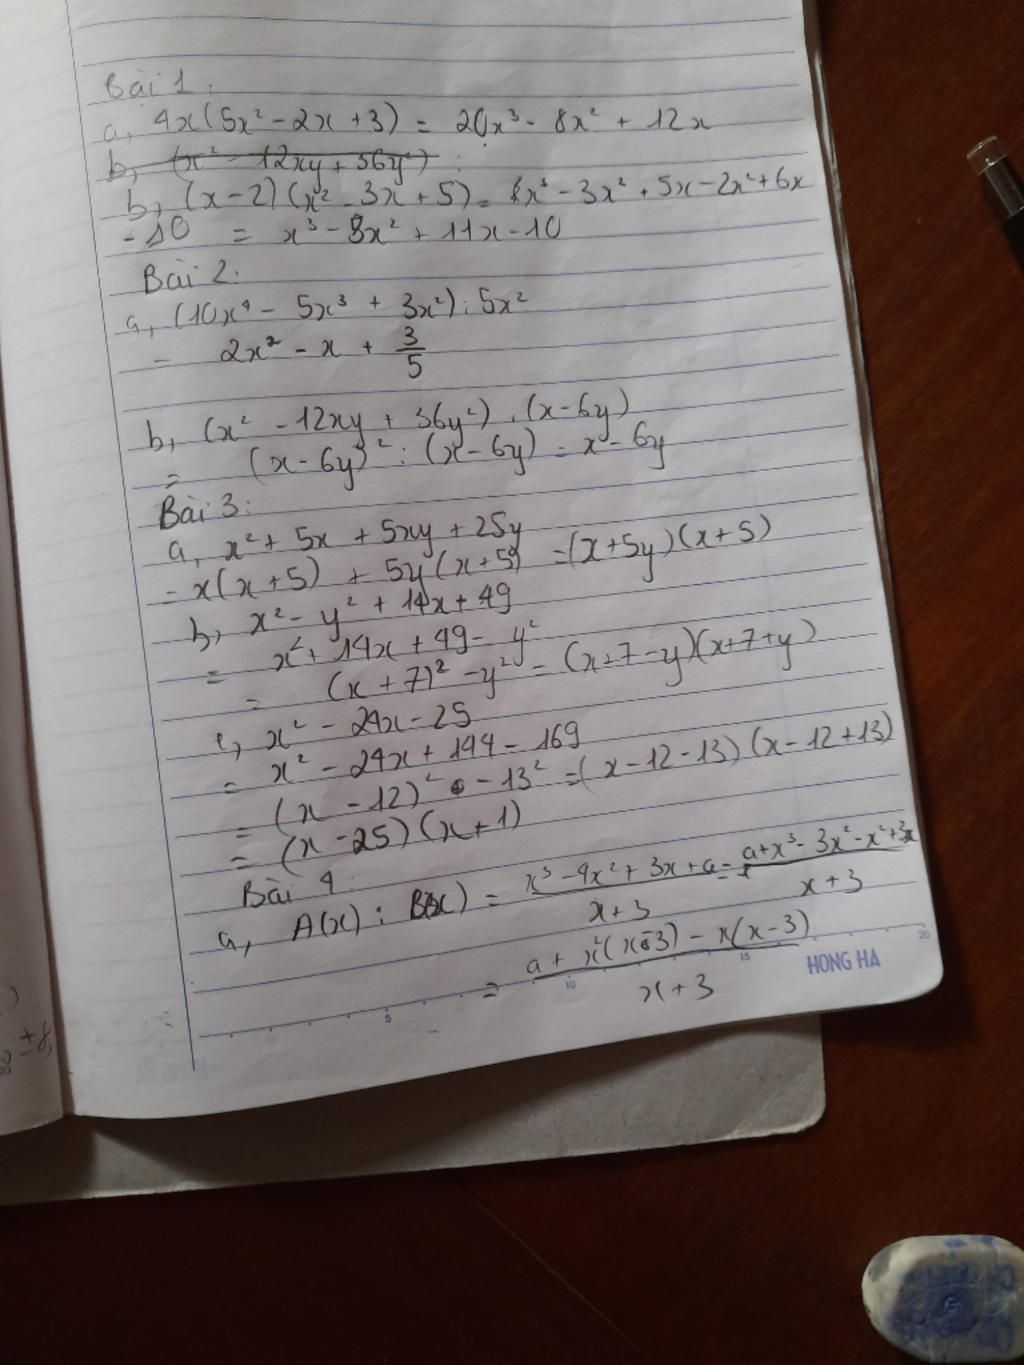 Bài 1:
a, 4x(5x² - 2x + 3) = 20x³ - 8x² + 12x
b, (x² - 12xy + 36y²)
b, (x-2)(x² - 3x + 5) = x³ - 3x² + 5x - 2x² + 6x
- 10 = x³ - 8x² + 11x - 10
Bài 2:
a, (10x⁴ - 5x³ + 3x²) : 5x²
= 2x² - x + 3/5
b, (x² - 12xy + 36y²) : (x - 6y)
= (x - 6y)² : (x - 6y) = x - 6y
Bài 3:
a, x² + 5x + 5xy + 25y
= x(x+5) + 5y(x+5) = (x+5y)(x+5)
b, x² - y² + 14x + 49
= x² + 14x + 49 - y²
= (x + 7)² - y² = (x+7-y)(x+7+y)
c, x² - 24x - 25
= x² - 24x + 144 - 169
= (x - 12)² - 13² = (x - 12 - 13)(x - 12 + 13)
= (x - 25)(x + 1)
Bài 4:
a, A(x) : B(x) = x³ - 4x² + 3x + a / x + 3 = a + x³ - 3x² - x² + 3x / x + 3
= a + x²(x - 3) - x(x - 3) / x + 3
5 10 15 20
HONG HA